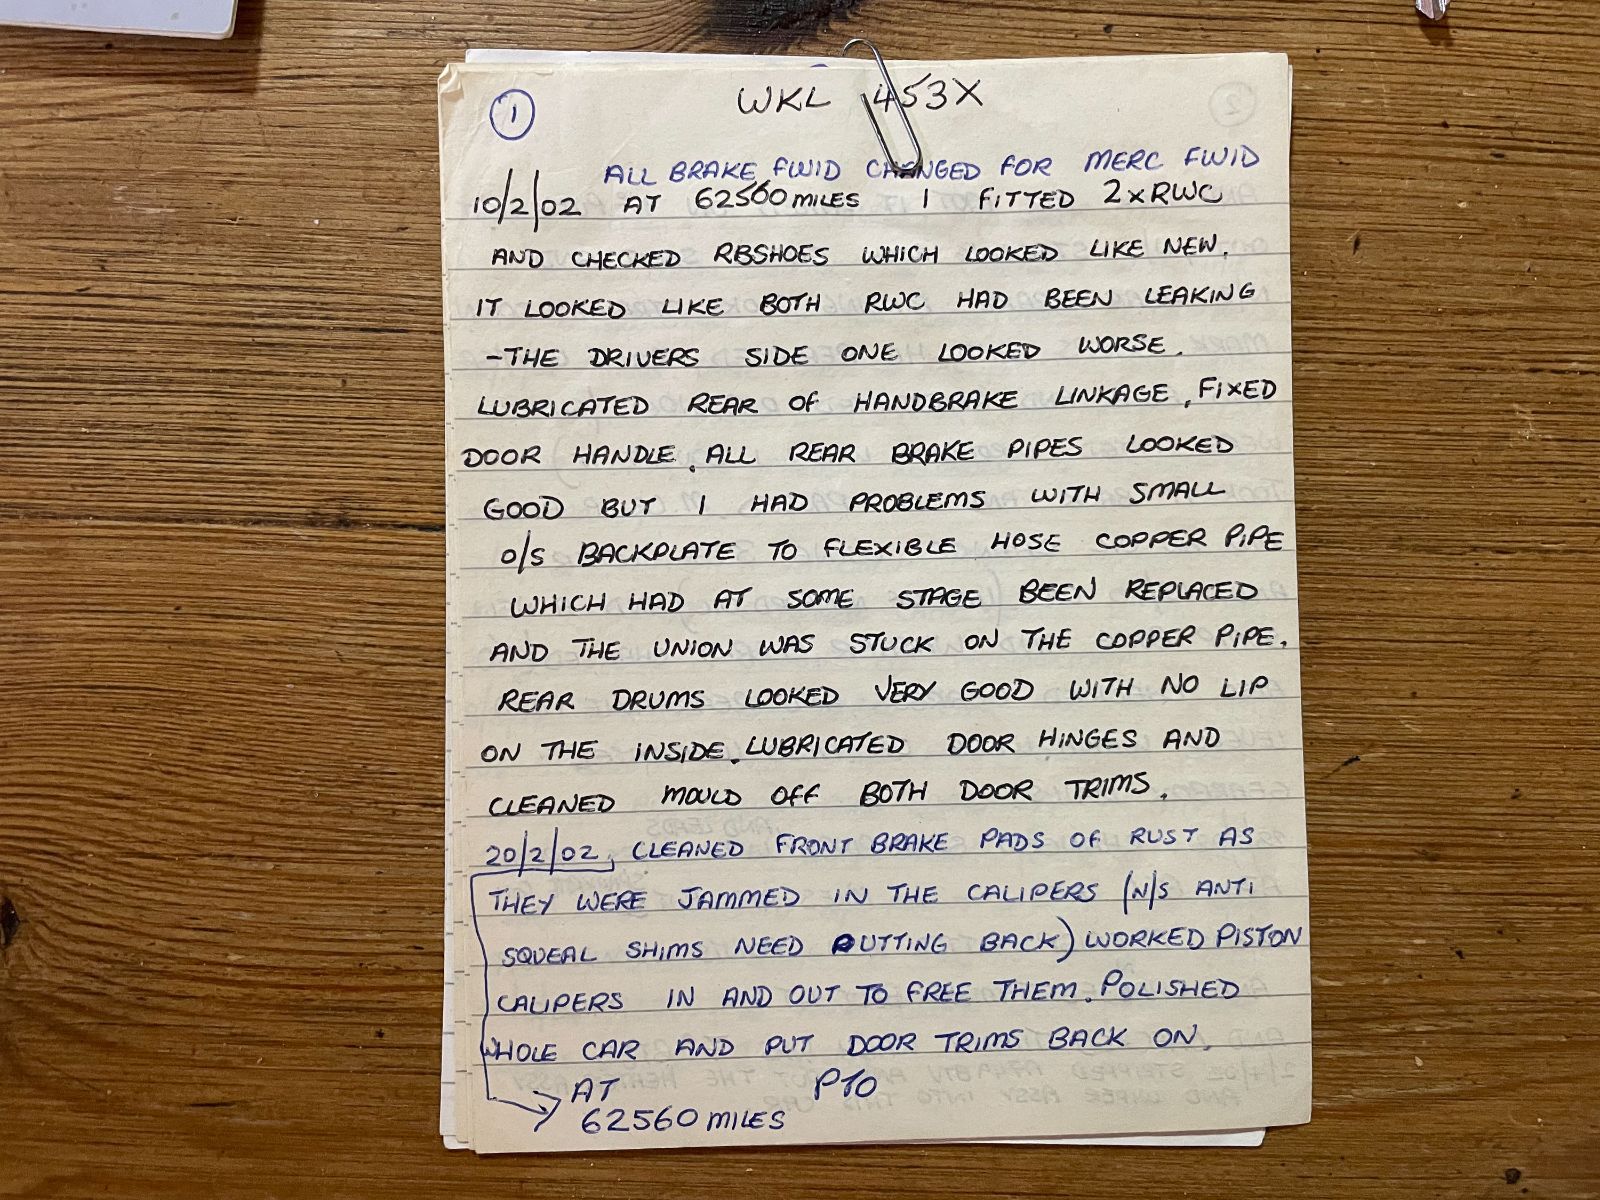 1
WKL 453X
ALL BRAKE FLUID CHANGED FOR MERC FLUID
10/2/02 AT 62560 MILES I FITTED 2xRWC
AND CHECKED RBSHOES WHICH LOOKED LIKE NEW.
IT LOOKED LIKE BOTH RWC HAD BEEN LEAKING
-THE DRIVERS SIDE ONE LOOKED WORSE.
LUBRICATED REAR OF HANDBRAKE LINKAGE, FIXED
DOOR HANDLE. ALL REAR BRAKE PIPES LOOKED
GOOD BUT I HAD PROBLEMS WITH SMALL
O/S BACKPLATE TO FLEXIBLE HOSE COPPER PIPE
WHICH HAD AT SOME STAGE BEEN REPLACED
AND THE UNION WAS STUCK ON THE COPPER PIPE.
REAR DRUMS LOOKED VERY GOOD WITH NO LIP
ON THE INSIDE. LUBRICATED DOOR HINGES AND
CLEANED MOULD OFF BOTH DOOR TRIMS.
20/2/02, CLEANED FRONT BRAKE PADS OF RUST AS
THEY WERE JAMMED IN THE CALIPERS (N/S ANTI
SQUEAL SHIMS NEED PUTTING BACK) WORKED PISTON
CALIPERS IN AND OUT TO FREE THEM. POLISHED
WHOLE CAR AND PUT DOOR TRIMS BACK ON.
AT PTO
62560 MILES